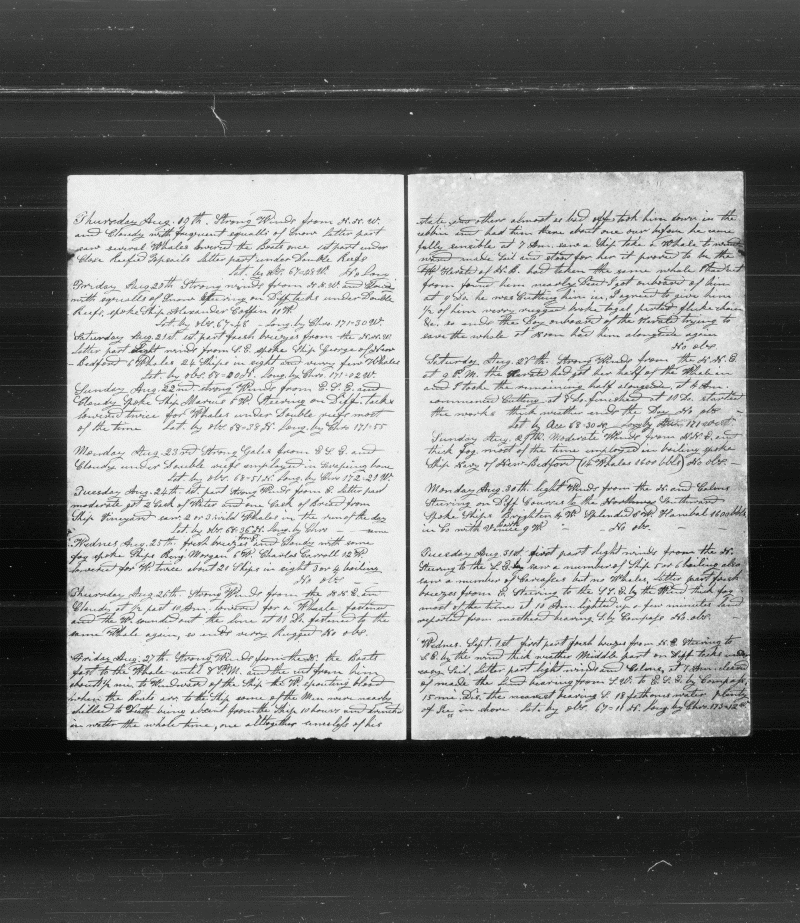 Thursday Aug. 19th. Strong Winds from N.N.W.
and Cloudy with frequent squalls of Snow latter part
saw several Whales lowered the Boats once 1st part under
Close Reefed Topsails latter part under Double Reefs
Lat. by Obs. 67-28 N. No Long.
Friday Aug. 20th Strong winds from N.N.W. and Cloudy
with squalls of Snow Steering on Diff. tacks under Double
Reefs, spoke Ship Alexander Coffin 11 W
Lat. by obs. 67-48 - Long. by Chro. 171-30 W
Saturday Aug. 21st. 1st. part fresh breezes from the N.N.W.
latter part light winds from S.E. spoke Ship George of New
Bedford 6 Whales 24 Ships in sight and very few Whales
Lat. by obs. 68-20 N. Long. by Chro. 171-02 W.
Sunday Aug. 22nd strong Winds from E.S.E. and
Cloudy Spoke Ship Marcus 6 W. Steering on Diff. tacks
lowered twice for Whales under Double reefs most
of the time Lat. by obs. 68-38 N. Long. by Chro 171-55
Monday Aug. 23rd Strong Gales from E.S.E. and
Cloudy under Double reefs employed in Scraping bone
Lat. by obs. 68-51 N. Long. by Chro 172-29 W.
Tuesday Aug. 24th. 1st. part strong Winds from E. latter part
moderate got 2 Cask of Water and one Cask of Bread from
Ship Vineyard saw 2 or 3 wild Whales in the run of the day
Lat by Obs. 68-36 N. Long. by Chro - same
Wednes Aug. 25th fresh breezes from N. and Cloudy with some
fog spoke Ships Roy. Morgan 6 W. Charles Carroll 12 W
lowered for W. twice about 21 Ships in sight 3 or 4 boiling
No obs -
Thursday Aug 26th Strong Winds from the N.N.E. and
Cloudy at ½ past 10 Am. lowered for a Whale fastened
and the W. sounded out the line at 11 Do. fastened to the
same Whale again, so ends very Rugged No obs.
Friday Aug. 27th. Strong Winds from the N. the Boats
fast to the Whale until 8 P.M. and the cut from him
about ½ m. to Windward of the Ship the W. spouting blood
when the Boats came to the Ship some of the Men were nearly
chilled to Death being absent from the Ship 10 hours and
in water the whole time, one alltogether senseless of his
state, one other almost as bad off took him down in the
cabbin and had him there about one our before he came
fully sensible at 7 Am. saw a Ship take a Whale to
wind made Sail and stood for her it proved to be the
Herald of N.B. had taken the same whale that
from found him nearly Dead I got onboard of him
at 9 Do. he was Cutting him in, I agreed to give him
½ of him very rugged broke togal parted fluke chain
&c. so ends the Day onboard of the Herald trying to
save the whale at Noon had him alongside again
No obs.
Saturday, Aug. 28th Strong Winds from the N.N.E.
at 9 P.M. the Herald had got her half of the Whale in
and I took the remaining half alongside, at 4 Am.
commenced Cutting at 8 Do. finished at 10 Do. started
the works thick weather ends the Day No obs
Lat. by Acc. 68-30 N. Long by
Sunday Aug. 29th. Moderate Winds from N.N.E. and
thick fog most of the time employed in boiling spoke
Ship Navy of New-Bedford (16 Whales 1600 bbls) No obs. -
Monday Aug. 30th light Winds from the N. and Calms
Steering on Diff. Courses to the Southward
Spoke Ships Brighton 4 W Splendid 6 W. Hanibal 1600 bbls
in Co with Venice 9 W " - No obs. - -
Tuesday Aug 31st first part light winds from the N.
Steering to the S.E. saw a number of Ship 5 or 6 boiling also
saw a number of Carcasses but no Whales, latter part fresh
breezes from E. Steering to the S.S.E. by the Wind thick fog
most of the time at 10 Am. lighted up a few minutes land
reported from masthead bearing S. by Compass No obs.
Wednes. Sept. 1st first part fresh breezes from N.E. Steering to
S.E. by the wind thick weather Middle part on Diff tacks under
easy Sail, latter part light winds and Calms, at 7 Am. cleared
up made the Land bearing from S.W. to E.S.E. by Compass,
15 mi. Dis. the nearest bearing S. 18 fathoms water plenty
of Ice in shore Lat. by obs 67-11 N. Long. by Chro. 173-12 W.